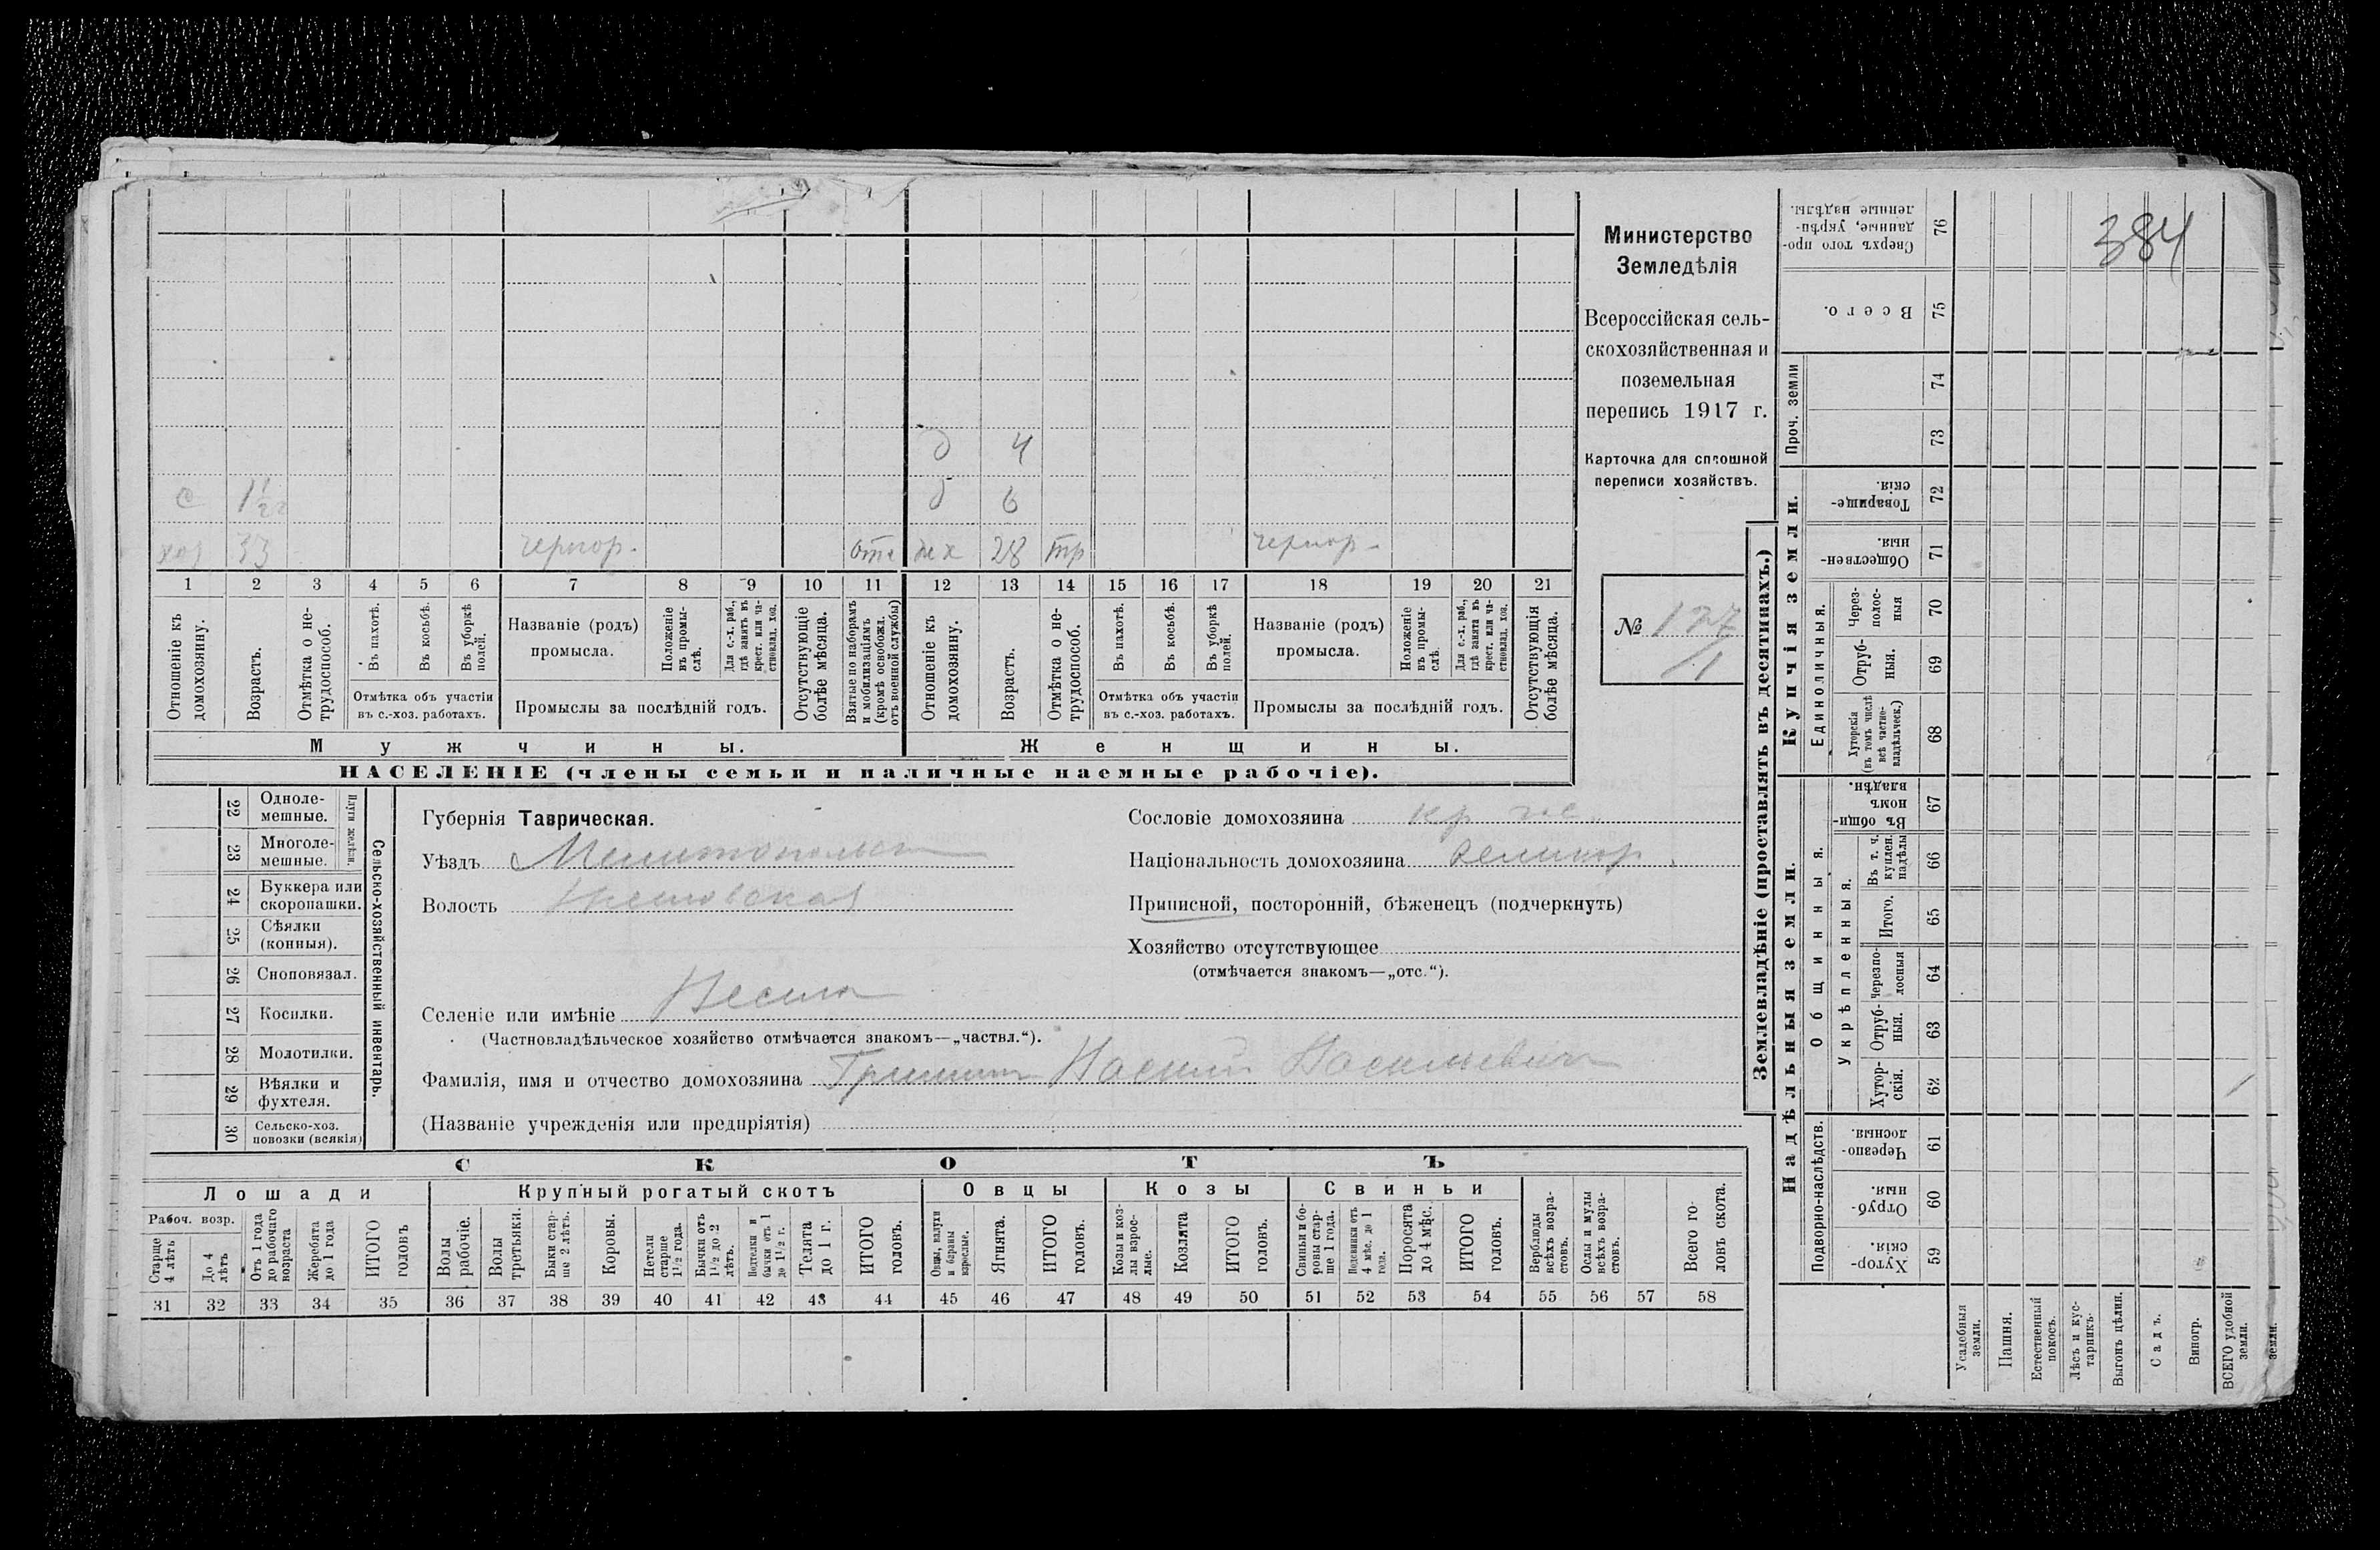 384
Министерство
Земледѣлія
Всероссійская сель-
скохозяйственная и
поземельная
перепись 1917 г.
Карточка для сплошной
переписи хозяйствъ.
№ 127
1
д 4
с 1½ д 6
хоз 33 чернор. отс жх 28 тр чернор.
1 2 3 4 5 6 7 8 9 10 11 12 13 14 15 16 17 18 19 20 21
Отношеніе къ домохозяину.
Возрастъ.
Отмѣтка о не-трудоспособ.
Въ пахотѣ.
Въ косьбѣ.
Въ уборкѣ полей.
Отмѣтка объ участіи
въ с.-хоз. работахъ.
Названіе (родъ)
промысла.
Положеніе въ промы-слѣ.
Для с.-х. раб., гдѣ занятъ въ крест. или ча-стновлад. хоз.
Промыслы за послѣдній годъ.
Отсутствующіе болѣе мѣсяца.
Взятые по наборамъ и мобилизаціямъ (кромѣ освобожд. отъ военной службы)
Отношеніе къ домохозяину.
Возрастъ.
Отмѣтка о не-трудоспособ.
Въ пахотѣ.
Въ косьбѣ.
Въ уборкѣ полей.
Отмѣтка объ участіи
въ с.-хоз. работахъ.
Названіе (родъ)
промысла.
Положеніе въ промы-слѣ.
Для с.-х. раб., гдѣ занята въ крест. или ча-стновлад. хоз.
Промыслы за послѣдній годъ.
Отсутствующія болѣе мѣсяца.
Мужчины. Женщины.
НАСЕЛЕНІЕ (члены семьи и наличные наемные рабочіе).
Сельско-хозяйственный инвентарь.
Плуги желѣзн.
22 Одноле-мешные.
23 Многоле-мешные.
24 Буккера или скоропашки.
25 Сѣялки (конныя).
26 Сноповязал.
27 Косилки.
28 Молотилки.
29 Вѣялки и фухтеля.
30 Сельско-хоз. повозки (всякія)
Губернія Таврическая.
Уѣздъ Мелитопольск
Волость
Сословіе домохозяина кр
Національность домохозяина Великор.
Приписной, посторонній, бѣженецъ (подчеркнуть)
Хозяйство отсутствующее
(отмѣчается знакомъ—„отс.“).
Селеніе или имѣніе
(Частновладѣльческое хозяйство отмѣчается знакомъ—„частвл.“).
Фамилія, имя и отчество домохозяина Гришин Василій Васильевич
(Названіе учрежденія или предпріятія)
СКОТЪ
Лошади Крупный рогатый скотъ Овцы Козы Свиньи
Рабоч. возр.
Старше 4 лѣтъ
До 4 лѣтъ
Отъ 1 года до рабочаго возраста
Жеребята до 1 года
ИТОГО головъ
Волы рабочіе.
Волы третьяки.
Быки стар-ше 2 лѣтъ.
Коровы.
Нетели старше 1½ года.
Бычки отъ 1½ до 2 лѣтъ.
Подтелки и бычки отъ 1 до 1½ г.
Телята до 1 г.
ИТОГО головъ.
Овцы, валухи и бараны взрослые.
Ягнята.
ИТОГО головъ.
Козы и коз-лы взрос-лые.
Козлята
ИТОГО головъ.
Свиньи и бо-ровы стар-ше 1 года.
Подсвинки отъ 4 мѣс. до 1 года.
Поросята до 4 мѣс.
ИТОГО головъ.
Верблюды всѣхъ возра-стовъ.
Ослы и мулы всѣхъ возра-стовъ.
Всего го-ловъ скота.
31 32 33 34 35 36 37 38 39 40 41 42 43 44 45 46 47 48 49 50 51 52 53 54 55 56 57 58
Землевладѣніе (проставлять въ десятинахъ.)
Купчія земли.
Сверхъ того про-данные, укрѣп-ленные надѣлы. 76
Всего. 75
Проч. земли 74
73
Товарище-скія. 72
Общественныя. 71
Единоличныя.
Через-полос-ныя 70
Отруб-ныя. 69
Хуторскія (въ томъ числѣ всѣ частно-владѣльческ.) 68
Надѣльныя земли.
Общинныя.
Въ общи-номъ владѣн. 67
Укрѣпленныя.
Въ т. ч. куплен. надѣлы 66
Итого. 65
Черезпо-лосныя 64
Отруб-ныя. 63
Хутор-скія. 62
Подворно-наслѣдств.
Черезпо-лосныя. 61
Отруб-ныя. 60
Хутор-скія. 59
Усадебныя земли.
Пашня.
Естественный покосъ.
Лѣсъ и кус-тарникъ.
Выгонъ цѣлия.
Садъ.
Виногр.
ВСЕГО удобной земли.
земли.